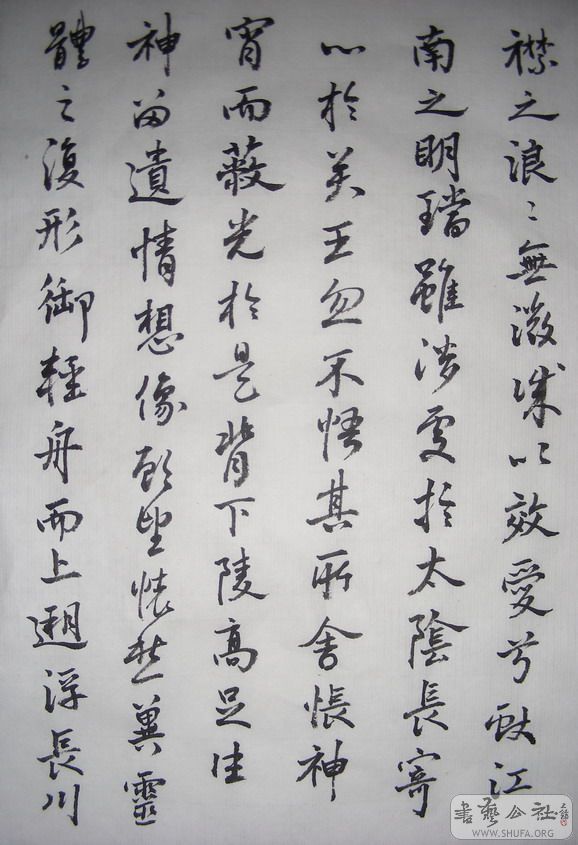 襟之浪〻無微情以效愛兮獻江
南之明璫雖潛處於太陰長寄
心於君王忽不悟其所舍悵神
宵而蔽光於是背下陵高足往
神留遺情想像顧望懷愁冀靈
體之復形御輕舟而上遡浮長川
書藝公社
WWW.SHUFA.ORG